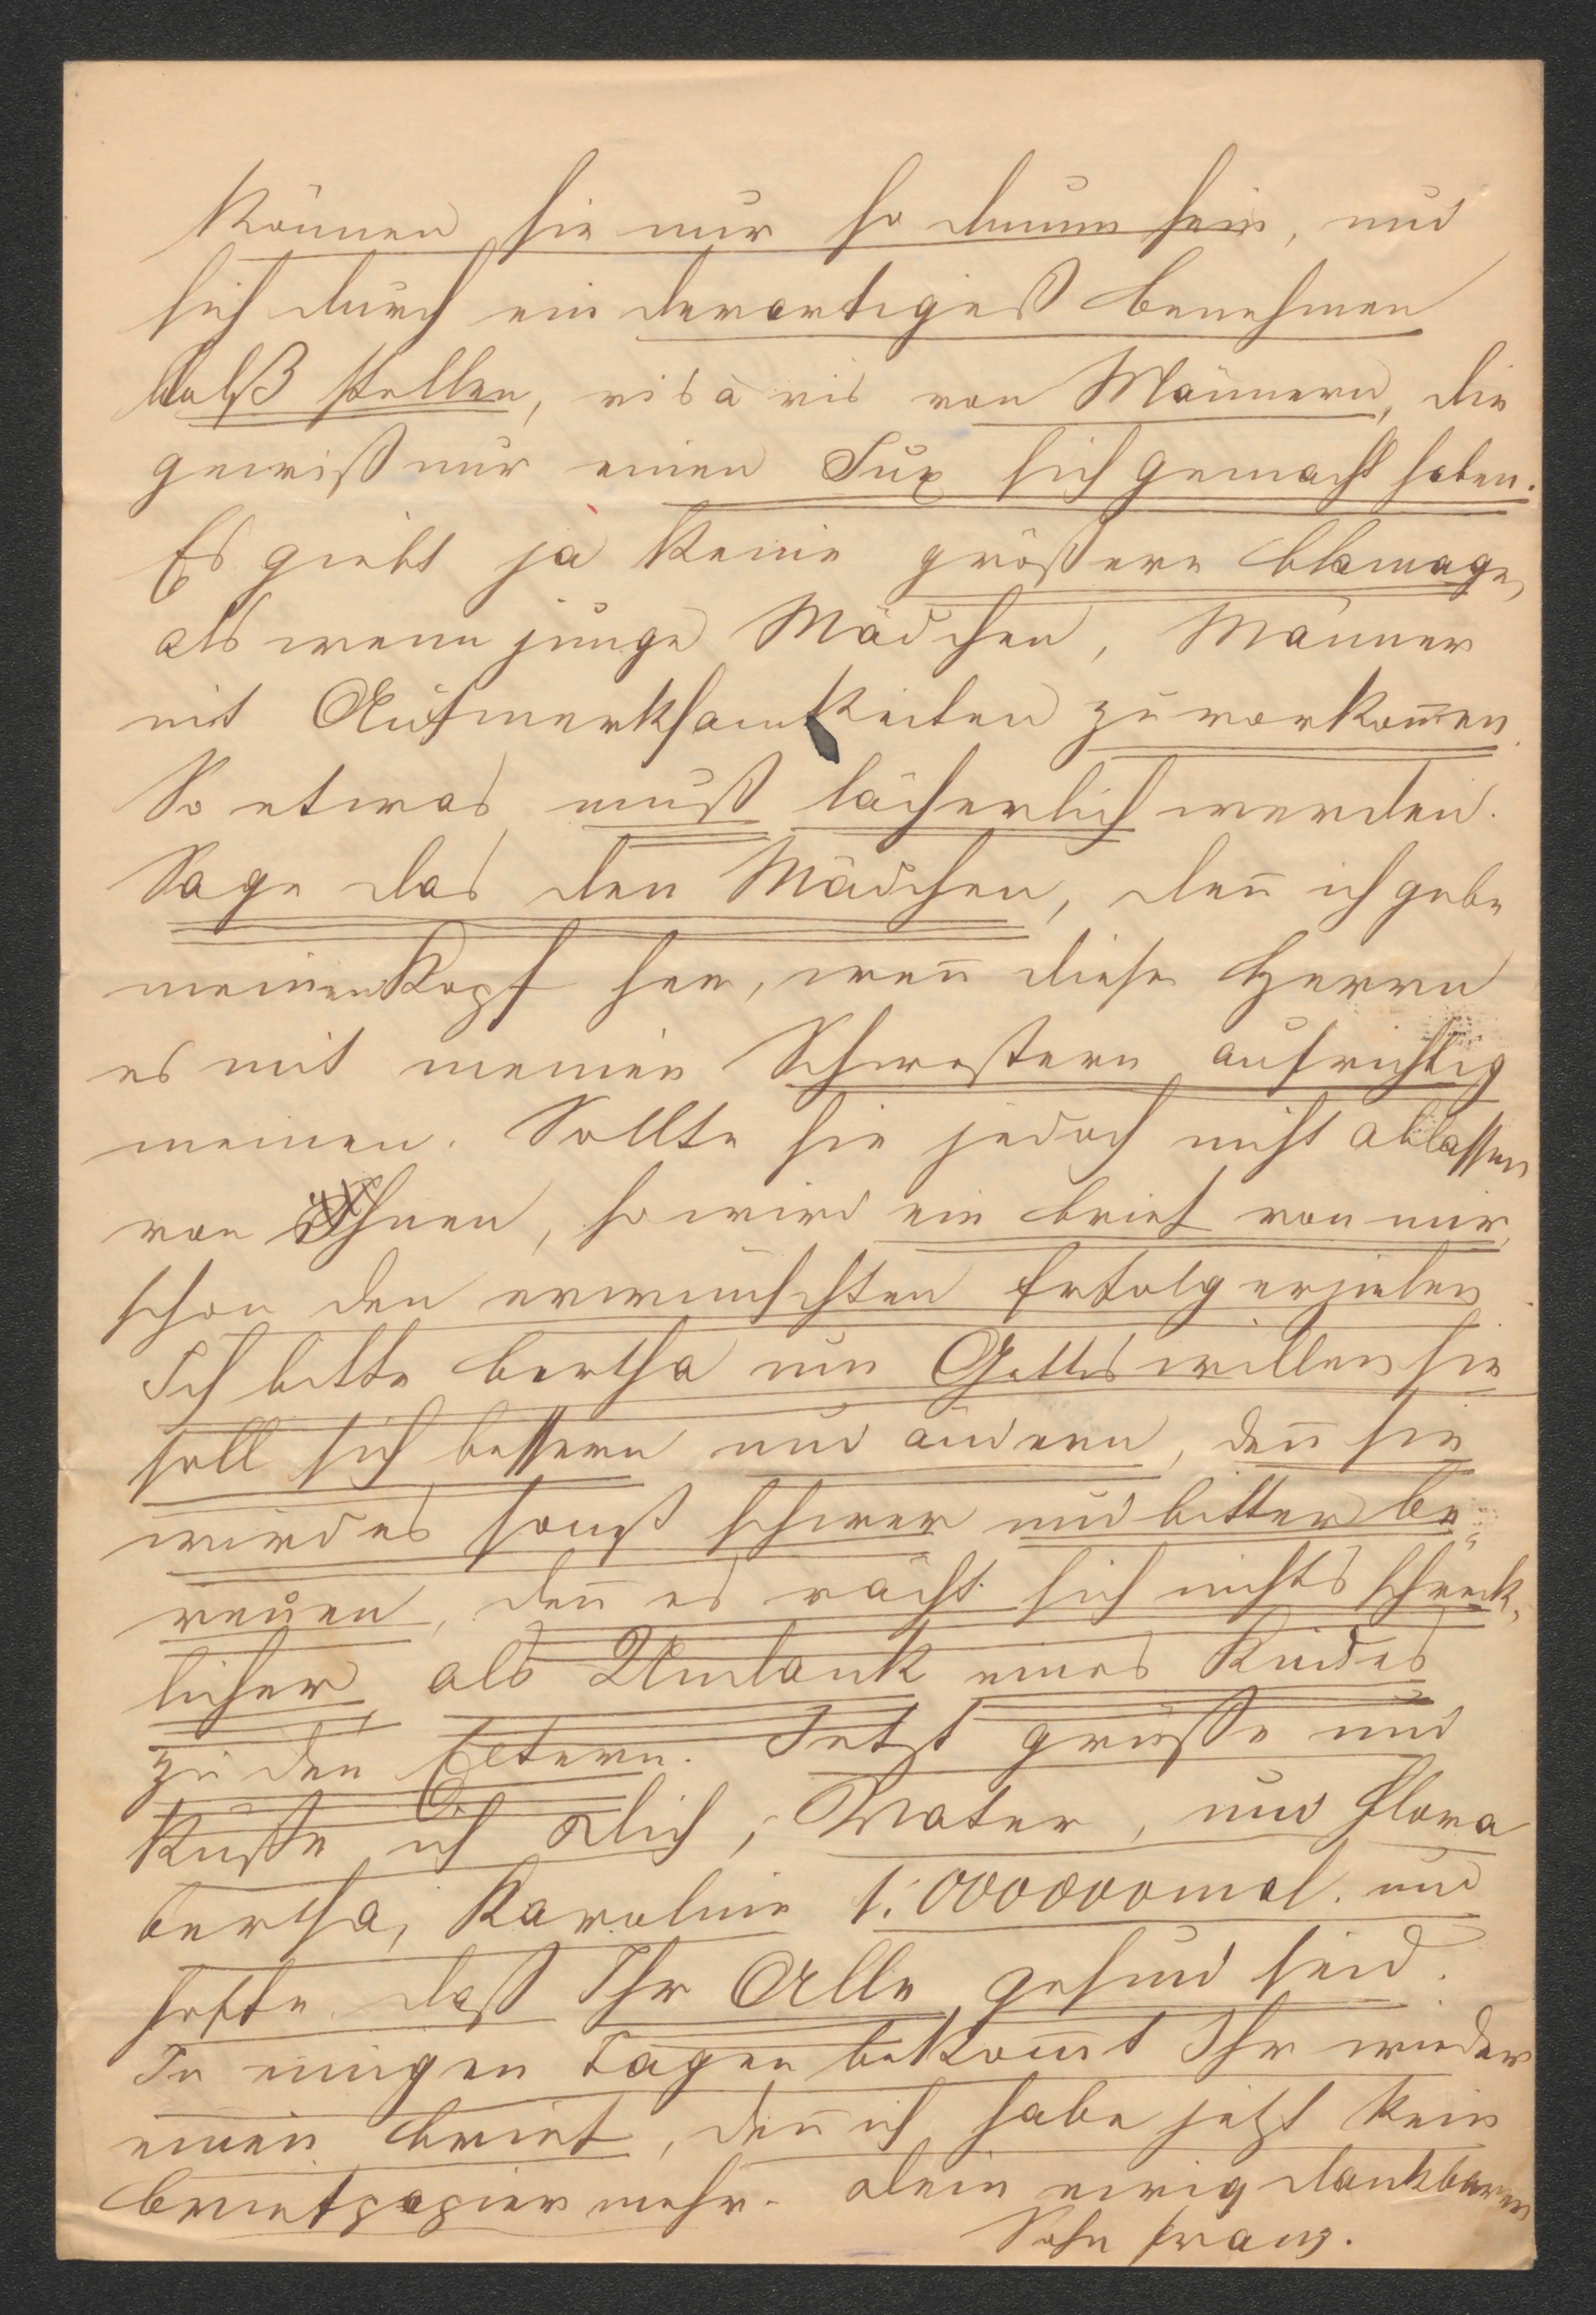 können sie nur so dumm sein, und
sich durch ein derartigeß benehmen
bloß stellen, vis à vis von Männern, die
gewiß nur einen Jux sich gemacht haben.
Es giebt ja keine größere blamage,
als wenn junge Mädchen, Männer
mit Aufmerksamkeiten zuvorkom̅en.
So etwas muß lächerlich werden.
Sage das den Mädchen, den̅ ich gebe
meinen Kopf her, wen̅ diese Herrn
es mit meinen Schwestern aufrichtig
meinen. Sollte sie jedoch nicht ablassen
von Ihnen, so wird ein brief von mir
schon den erwünschten Erfolg erzielen.
Ich bitte bertha um Gottes willen sie
soll sich bessern und ändern, den̅ sie
wird es sonst schwer und bitter be-
reuen, den̅ es rächt sich nichts schreck-
licher als Undank eines Kindes
zu den Eltern. Jetzt grüße und
küße ich Dich, Vater, und Flora
bertha, Karoline 1.000000mal. und
hoffe daß Ihr Alle gesund seid.
In einigen Tagen bekom̅t Ihr wieder
einen brief, den̅ ich habe jetzt kein
briefpapier mehr. Dein ewig dankbarer
Sohn Franz.